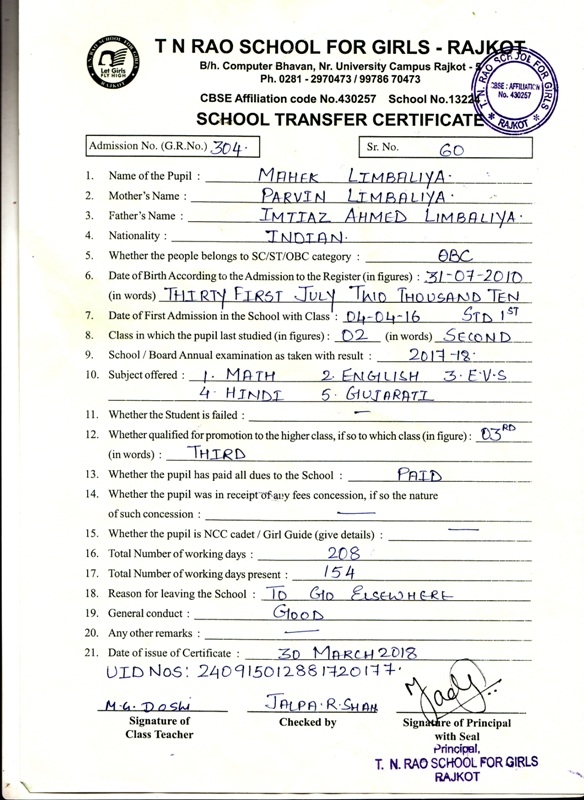 T N RAO SCHOOL FOR GIRLS
Let Girls
FLY HIGH
RAJKOT
T N RAO SCHOOL FOR GIRLS - RAJKOT
B/h. Computer Bhavan, Nr. University Campus Rajkot -
Ph. 0281 - 2970473 / 99786 70473
CBSE Affiliation code No.430257 School No.1322
SCHOOL TRANSFER CERTIFICATE
T. N. RAO SCHOOL FOR GIRLS
CBSE : AFFILIATION
No. 430257
* RAJKOT *
Admission No. (G.R.No.) 304. Sr. No. 60
1. Name of the Pupil : MAHEK LIMBALIYA.
2. Mother's Name : PARVIN LIMBALIYA.
3. Father's Name : IMTIAZ AHMED LIMBALIYA.
4. Nationality : INDIAN.
5. Whether the people belongs to SC/ST/OBC category : OBC
6. Date of Birth According to the Admission to the Register (in figures) : 31-07-2010
(in words) THIRTY FIRST JULY TWO THOUSAND TEN
7. Date of First Admission in the School with Class : 04-04-16 STD 1ST
8. Class in which the pupil last studied (in figures) : 02 (in words) SECOND
9. School / Board Annual examination as taken with result : 2017-18.
10. Subject offered : 1. MATH 2. ENGLISH 3. E.V.S
4. HINDI 5. GUJARATI
11. Whether the Student is failed : —
12. Whether qualified for promotion to the higher class, if so to which class (in figure) : 03RD
(in words) : THIRD
13. Whether the pupil has paid all dues to the School : PAID
14. Whether the pupil was in receipt of any fees concession, if so the nature
of such concession : —
15. Whether the pupil is NCC cadet / Girl Guide (give details) : —
16. Total Number of working days : 208
17. Total Number of working days present : 154
18. Reason for leaving the School : TO GO ELSEWHERE
19. General conduct : GOOD
20. Any other remarks : —
21. Date of issue of Certificate : 30 MARCH 2018
UID NOS: 240915012881720177.
M.G. DOSHI JALPA.R.SHAH
Signature of Class Teacher
Checked by
Signature of Principal with Seal
Principal,
T. N. RAO SCHOOL FOR GIRLS
RAJKOT